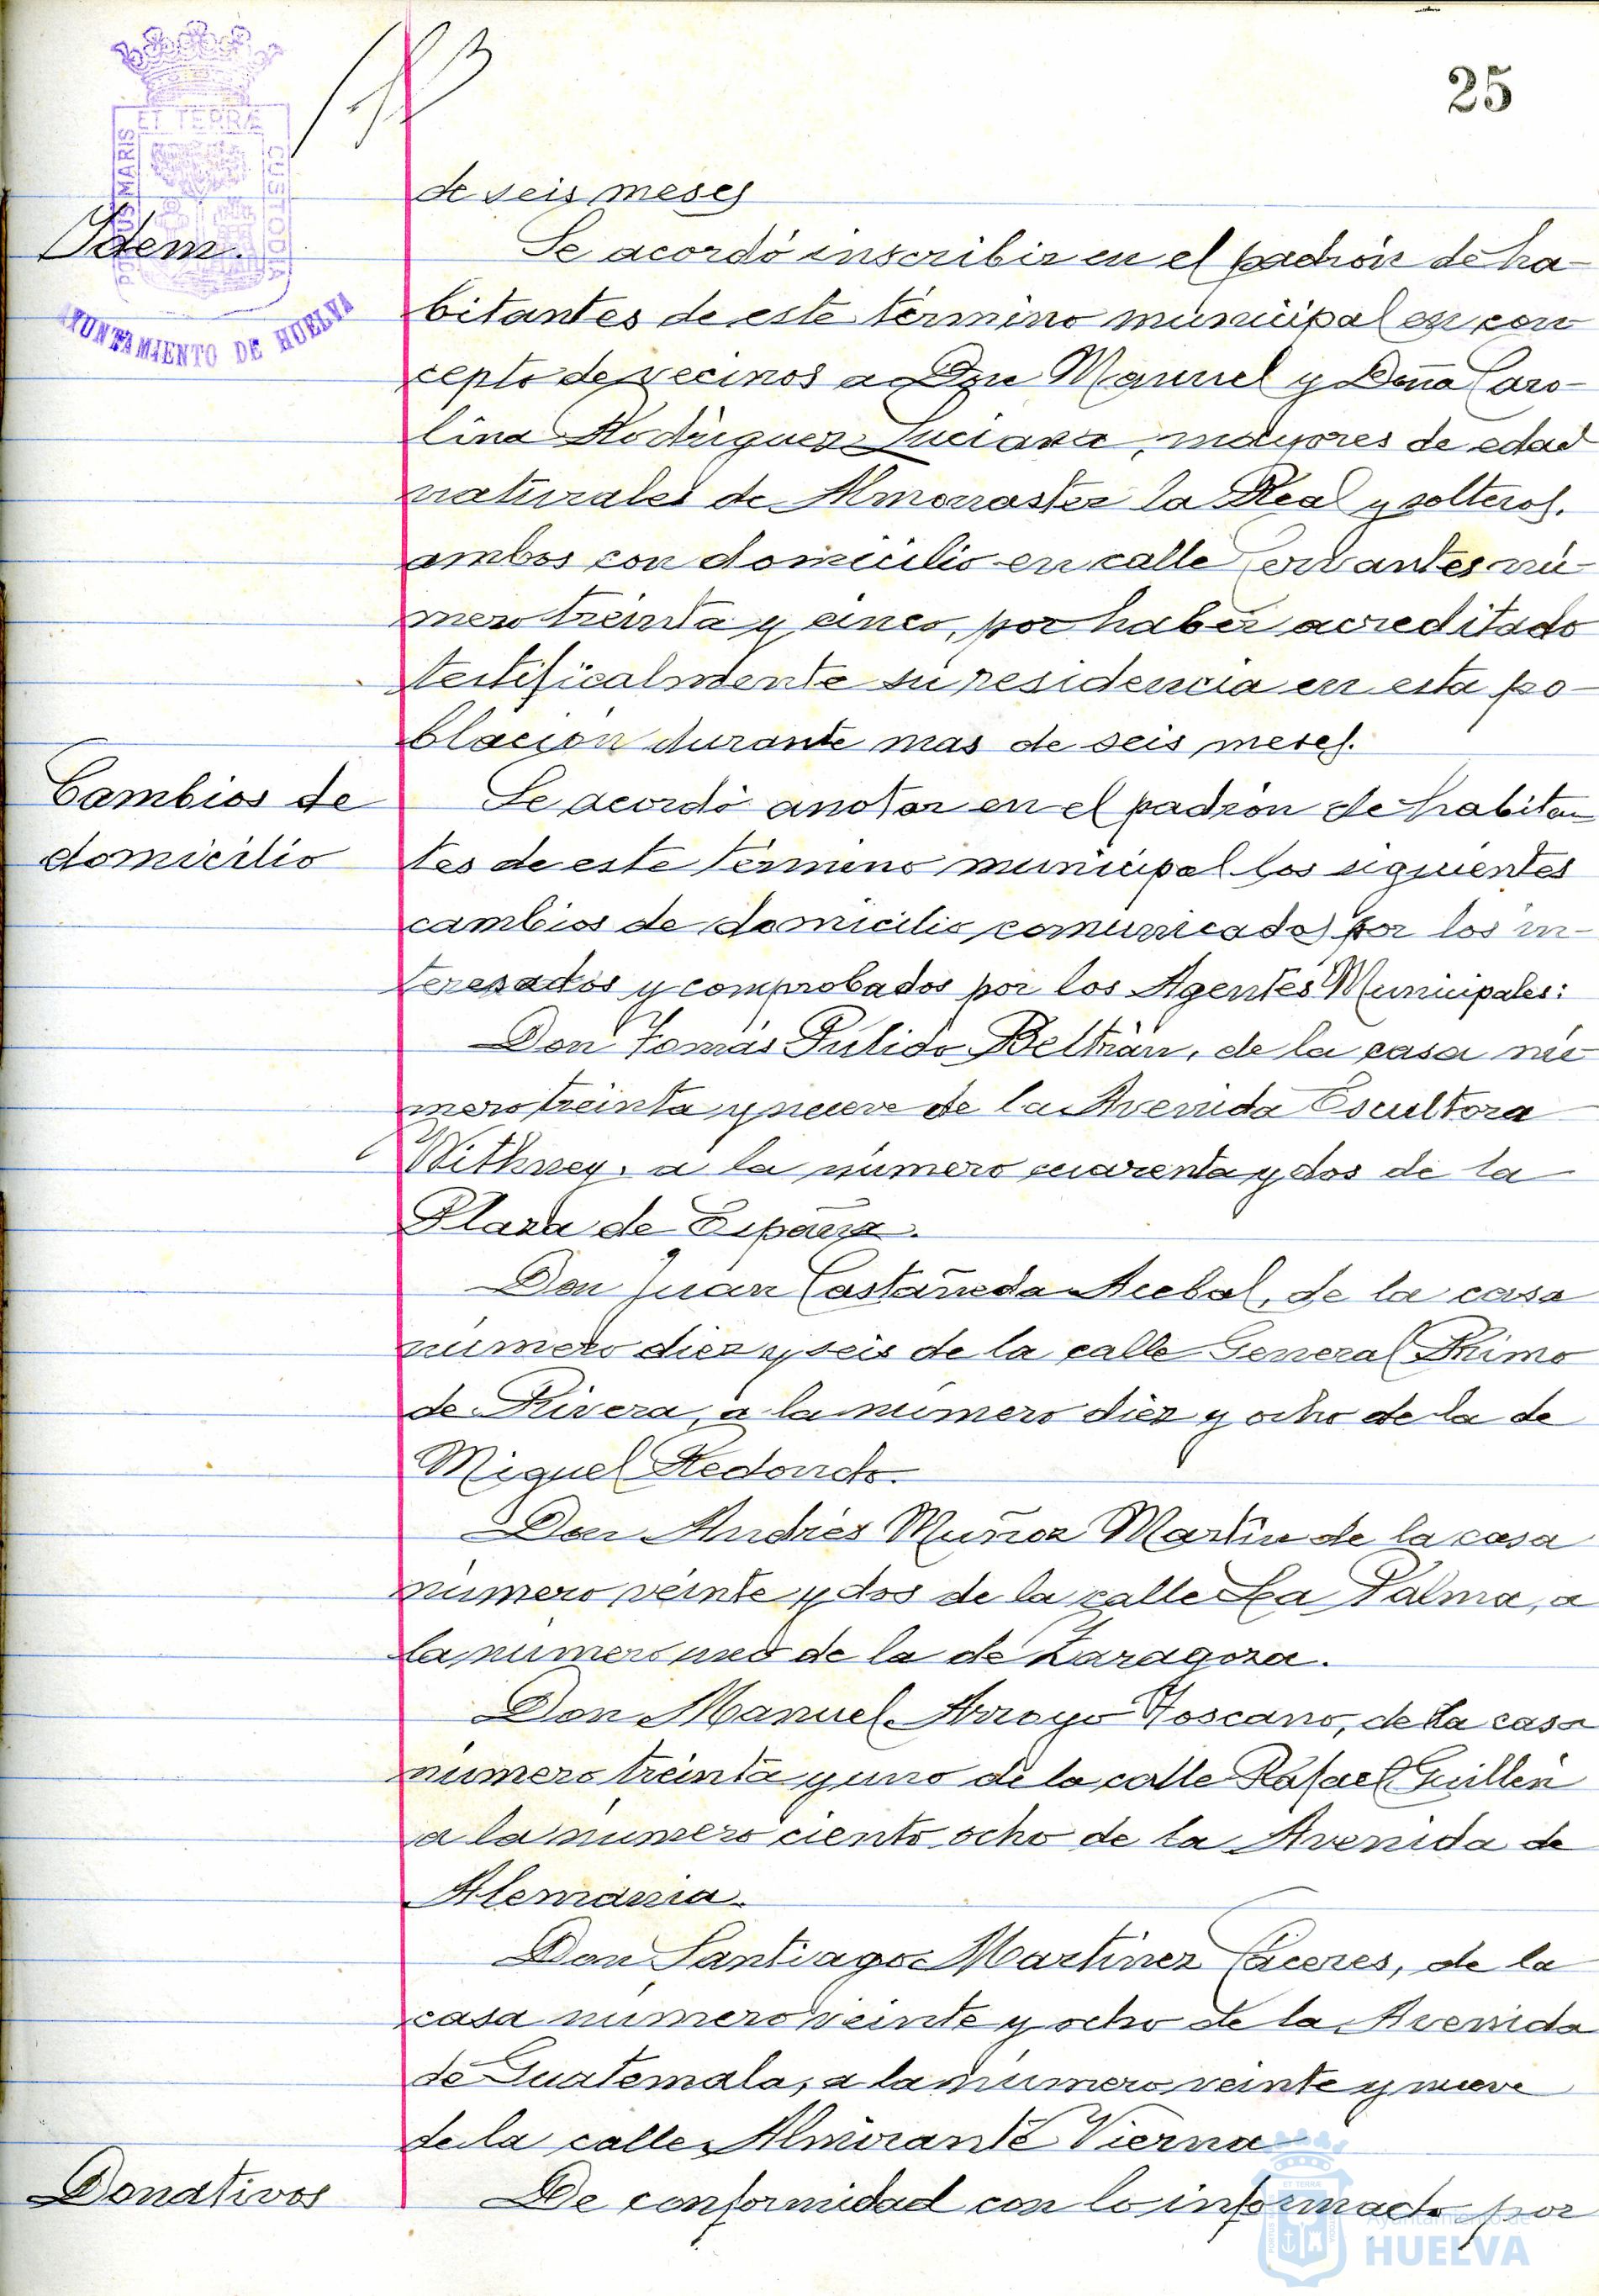 25
ET TERRÆ
PORTUS MARIS
CUSTODIA
AYUNTAMIENTO DE HUELVA
de seis meses
Idem.
Se acordó inscribir en el padrón de ha-
bitantes de este término municipal en con
cepto de vecinos a Don Manuel y Doña Caro-
lina Rodríguez Luciana, mayores de edad
naturales de Almonaster la Real y solteros.
ambos con domicilio en calle Cervantes nú-
mero treinta y cinco, por haber acreditado
testificalmente su residencia en esta po-
blación durante mas de seis meses.
Cambios de
domicilio
Se acordó anotar en el padrón de habitan
tes de este término municipal los siguientes
cambios de domicilio comunicados por los in-
teresados y comprobados por los Agentes Municipales:
Don Tomás Pulido Beltrán, de la casa nú
mero treinta y nueve de la Avenida Escultora
Withney, a la número cuarenta y dos de la
Plaza de España.
Don Juan Castañeda Acebal, de la casa
número diez y seis de la calle General Primo
de Rivera, a la número diez y ocho de la de
Miguel Redondo.
Don Andrés Muñoz Martín de la casa
número veinte y dos de la calle La Palma, a
la número uno de la de Zaragoza.
Don Manuel Arroyo Toscano, de la casa
número treinta y uno de la calle Rafael Guillén
a la número ciento ocho de la Avenida de
Alemania.
Don Santiago Martínez Cáceres, de la
casa número veinte y ocho de la Avenida
de Guatemala, a la número veinte y nueve
de la calle Almirante Vierna
Donativos
De conformidad con lo informado por
Ayuntamiento de
HUELVA